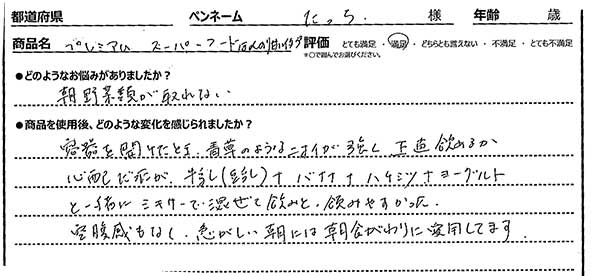 都道府県 ペンネーム たっち. 様 年齢 歳
商品名 プレミアム スーパーフード 評価 とても満足 ・ 満足 ・ どちらとも言えない ・ 不満足 ・ とても不満足
※○で囲んでお選びください。
●どのようなお悩みがありましたか？
朝野菜類が取れない
●商品を使用後、どのような変化を感じられましたか？
容器を開けたとき、青草のようなニオイが強く正直飲めるか
心配だったが、牛乳(豆乳)+バナナ+ハチミツ+ヨーグルト
と一緒にミキサーで混ぜて飲みと、飲みやすかった.
空腹感もなく、急がしい朝には朝食がわりに愛用してます.